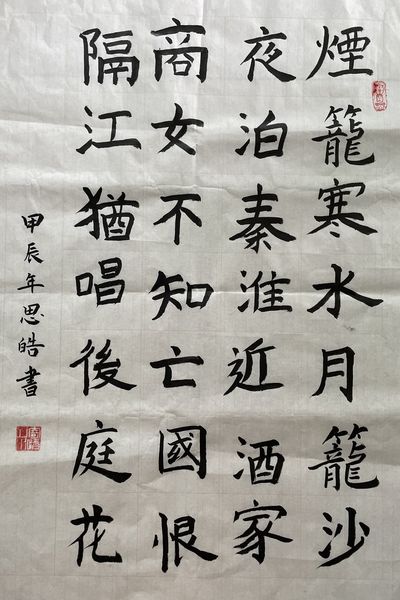 煙籠寒水月籠沙
夜泊秦淮近酒家
商女不知亡國恨
隔江猶唱後庭花
甲辰年思皓書